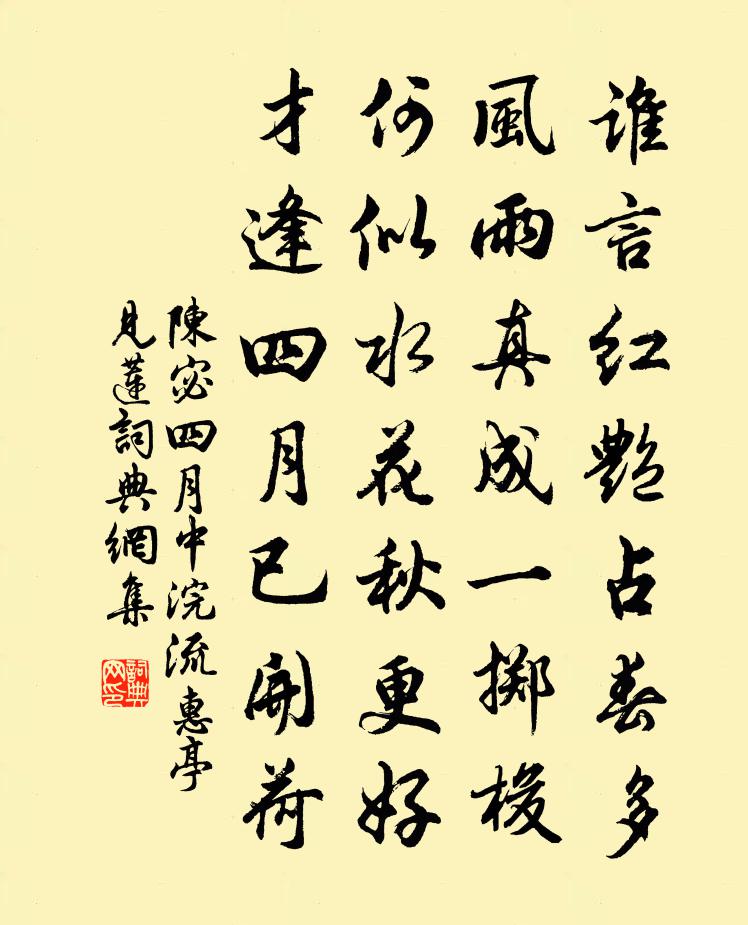 誰言紅艷占春多
風雨真成一擲梭
何似水花秋更好
才逢四月已開荷
陳宓四月中浣流惠亭
見蓮詞典網集
詞典網印